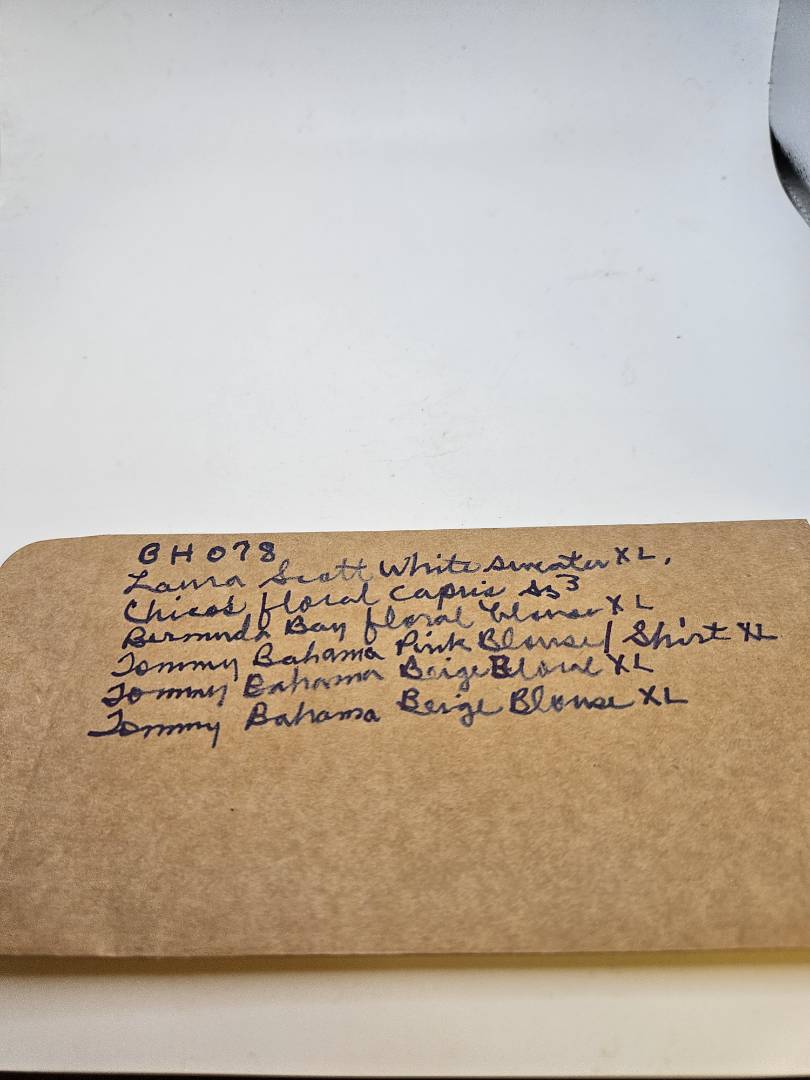 BH078
Laura Scott White Sweater XL,
Chicos floral capris Ss3
Bermuda Bay floral blouse XL
Tommy Bahama Pink Blouse/Shirt XL
Tommy Bahama Beige Blouse XL
Tommy Bahama Beige Blouse XL